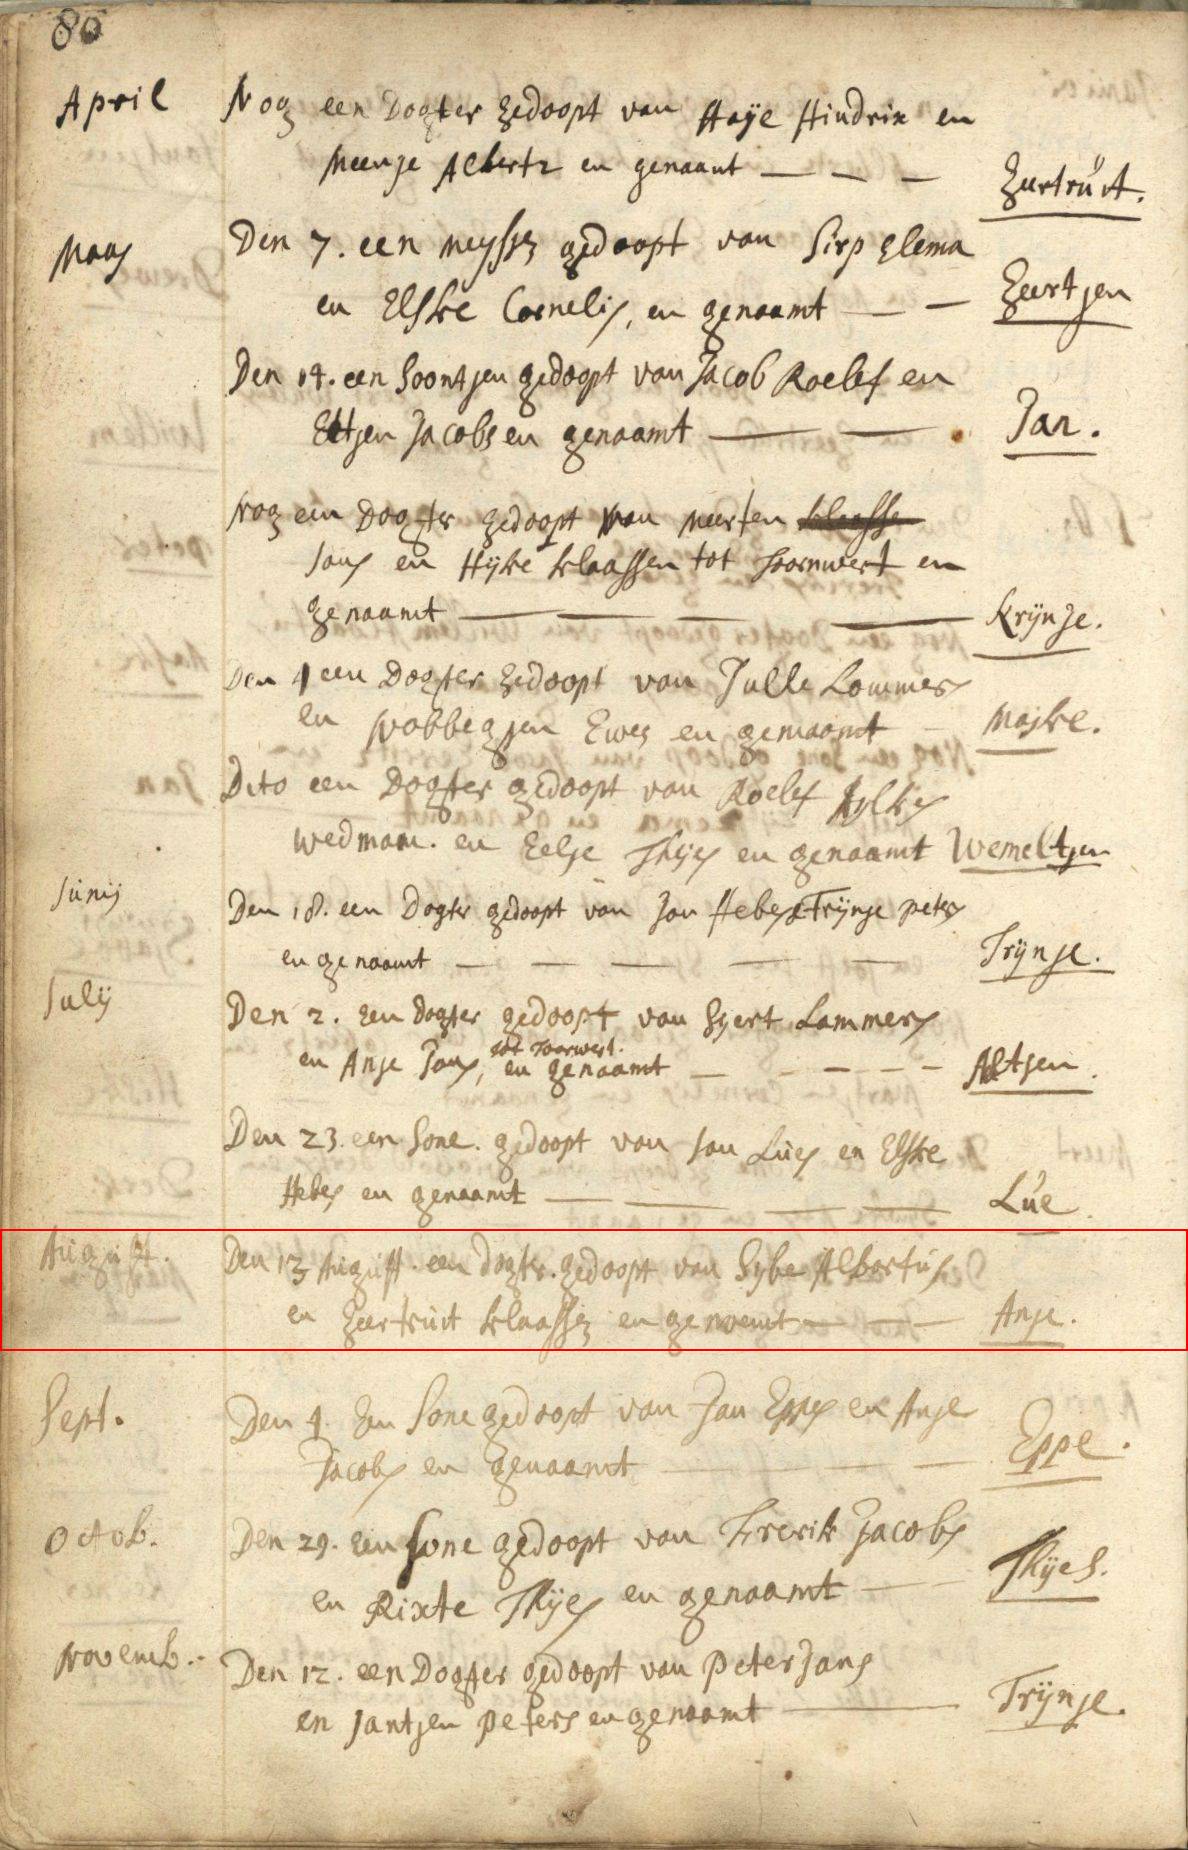 80
April Nog een Dogter gedoopt van Haÿe Hindrix en
Meenje Alberts en genaamt — — — geertruÿt.
Maaÿ Den 7. een meysje gedoopt van Sirp Elema
en Elske Cornelis, en genaamt — — Geertjen
Den 14. een Soontjen gedoopt van Jacob Roelef en
Eltjen Jacobs en genaamt — — Jan.
Nog een Dogter gedoopt van Meerten klaasse
Jans en Hijke klaassen tot Toornwert en
genaamt — — — — krijnje.
Den 4 een Dogter gedoopt van Julle Lommers
en Wobbegjen Ewes en genaamt — Majke.
Dito een Dogter gedoopt van Roelef
wedman. en Eelje Thijes en genaamt Wemeltjen
Junij Den 18. een Dogter gedoopt van Jan Hebes & Trijnje peters
en genaamt — — — — — Trijnje.
Julij Den 2. een Dogter gedoopt van Sjert Lammers
tot Toorwert.
en Anje Jans, en genaamt — — — — — Altjen.
Den 23. een Sone. gedoopt van Jan Lues en Elske
Hebes en genaamt — — — — Lue.
August. Den 13 August. een dogter. gedoopt van Sybe Albartus
en geertruit klaassen en genoemt — — — Anje.
Sept. Den 4. Een Sone gedoopt van Jan Eppes en Anje
Jacobs en genaamt — — — Eppe.
Octob. Den 29. een Sone gedoopt van Frerik Jacobs
en Rixte Thijes en genaamt — Thijes.
Novemb.. Den 12. een Dogter gedoopt van Peter Jans
en Jantjen peters en genaamt — Trijnje.